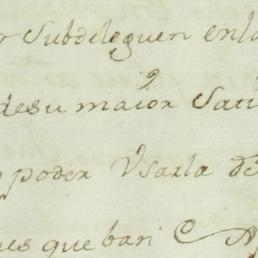 r Subdeleguen enla
desu maior Sati
poder Vsarla de
es que bari